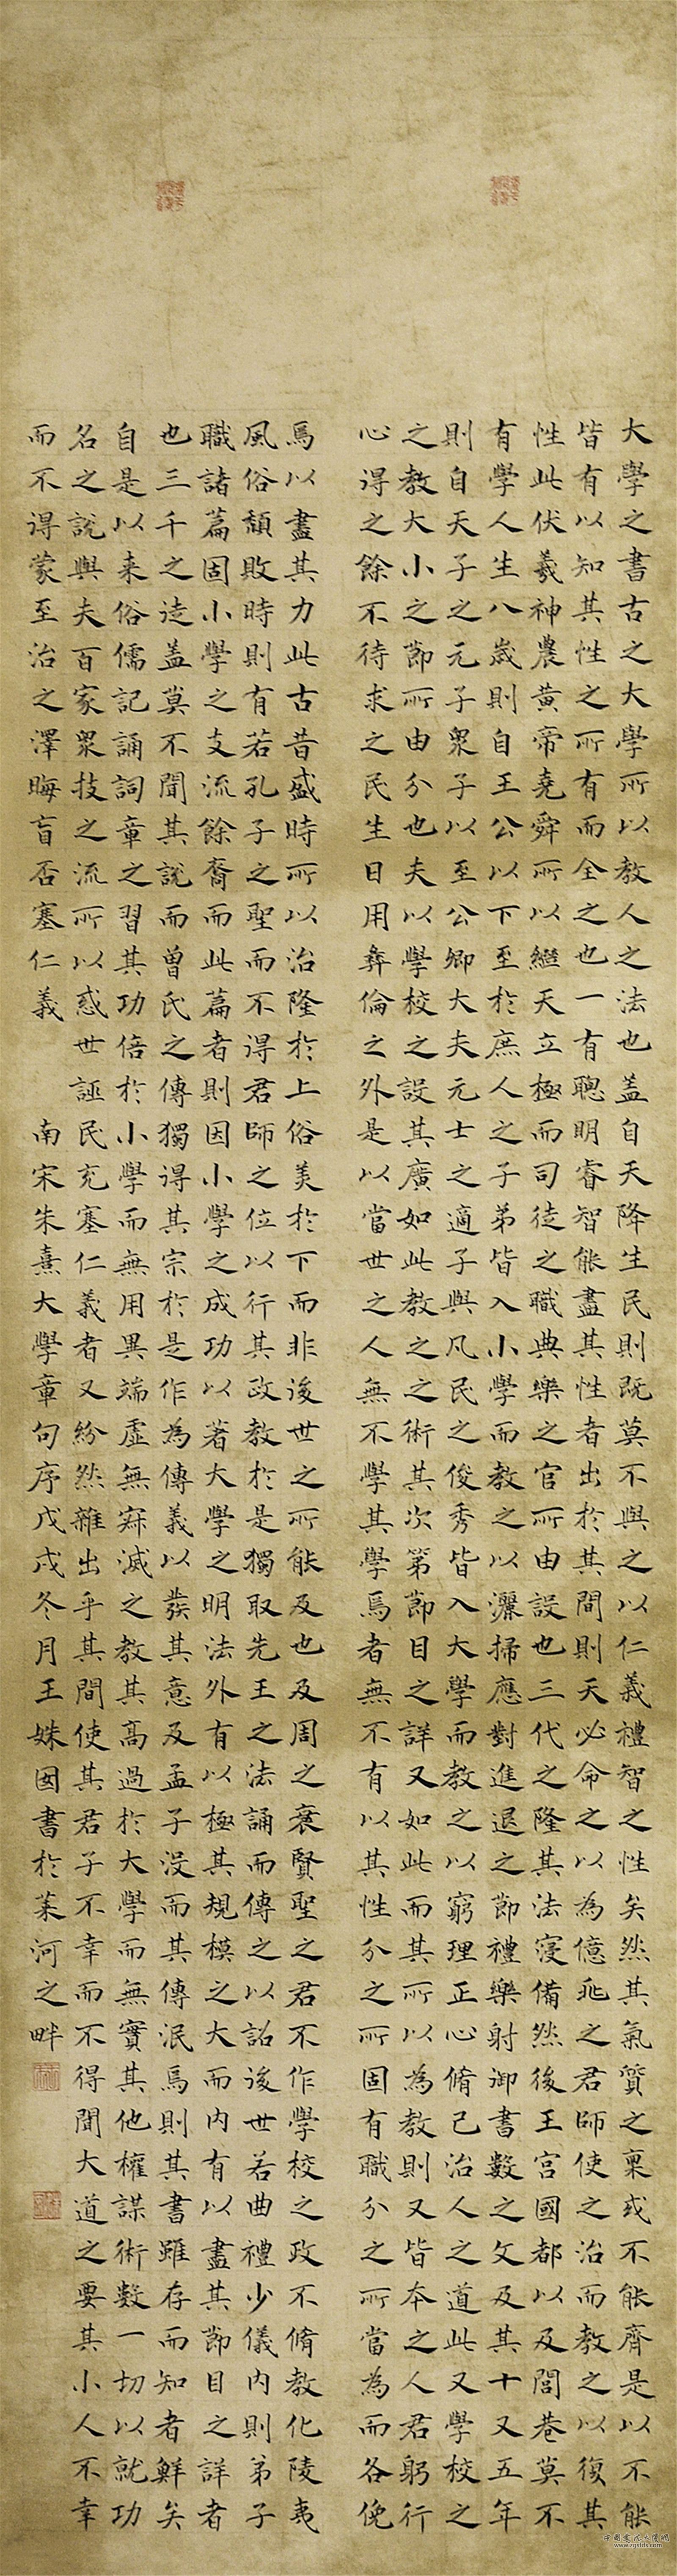 大學之書古之大學所以教人之法也蓋自天降生民則既莫不與之以仁義禮智之性矣然其氣質之稟或不能齊是以不能
皆有以知其性之所有而全之也一有聰明睿智能盡其性者出於其間則天必命之以為億兆之君師使之治而教之以復其
性此伏羲神農黃帝堯舜所以繼天立極而司徒之職典樂之官所由設也三代之隆其法寖備然後王宮國都以及閭巷莫不
有學人生八歲則自王公以下至於庶人之子弟皆入小學而教之以灑掃應對進退之節禮樂射御書數之文及其十又五年
則自天子之元子眾子以至公卿大夫元士之適子與凡民之俊秀皆入大學而教之以窮理正心脩己治人之道此又學校之
之教大小之節所由分也夫以學校之設其廣如此教之之術其次第節目之詳又如此而其所以為教則又皆本之人君躬行
心得之餘不待求之民生日用彝倫之外是以當世之人無不學其學焉者無不有以其性分之所固有職分之所當為而各俛
焉以盡其力此古昔盛時所以治隆於上俗美於下而非後世之所能及也及周之衰賢聖之君不作學校之政不脩教化陵夷
風俗頹敗時則有若孔子之聖而不得君師之位以行其政教於是獨取先王之法誦而傳之以詔後世若曲禮少儀內則弟子
職諸篇固小學之支流餘裔而此篇者則因小學之成功以著大學之明法外有以極其規模之大而內有以盡其節目之詳者
也三千之徒蓋莫不聞其說而曾氏之傳獨得其宗於是作為傳義以發其意及孟子沒而其傳泯焉則其書雖存而知者鮮矣
自是以来俗儒記誦詞章之習其功倍於小學而無用異端虛無寂滅之教其高過於大學而無實其他權謀術數一切以就功
名之說與夫百家眾技之流所以惑世誣民充塞仁義者又紛然雜出乎其間使其君子不幸而不得聞大道之要其小人不幸
而不得蒙至治之澤晦盲否塞仁義 南宋朱熹大學章句序戊戌冬月王姝囡書於萊河之畔